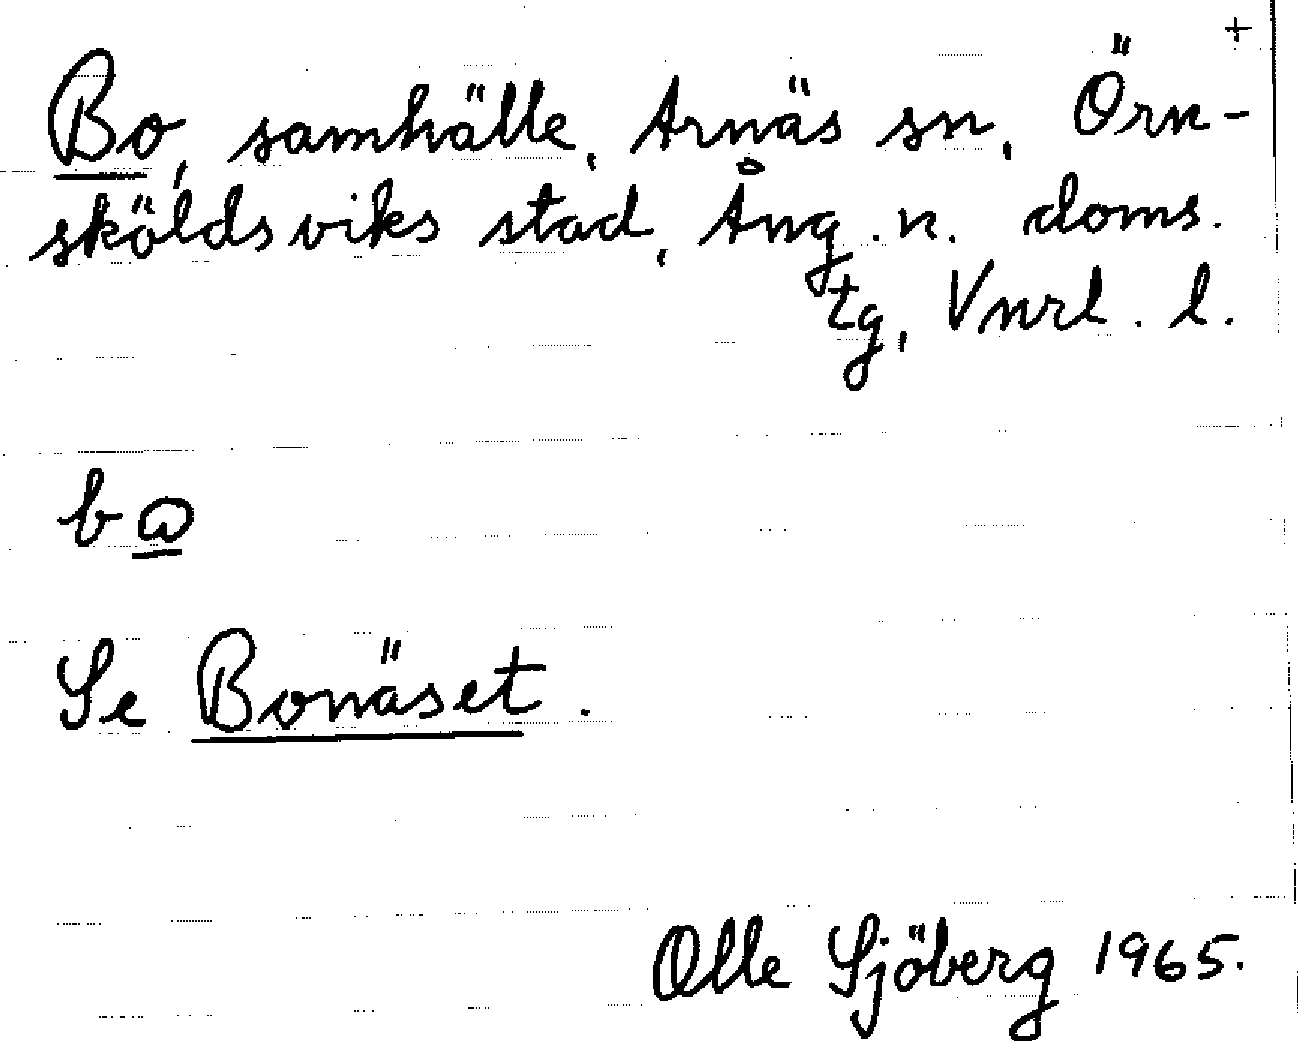 +
Bo, samhälle, Arnäs sn, Örn-
sköldsviks stad, Ång. n. doms.
tg, Vnrl. l.
bɷ
Se Bonäset.
Olle Sjöberg 1965.